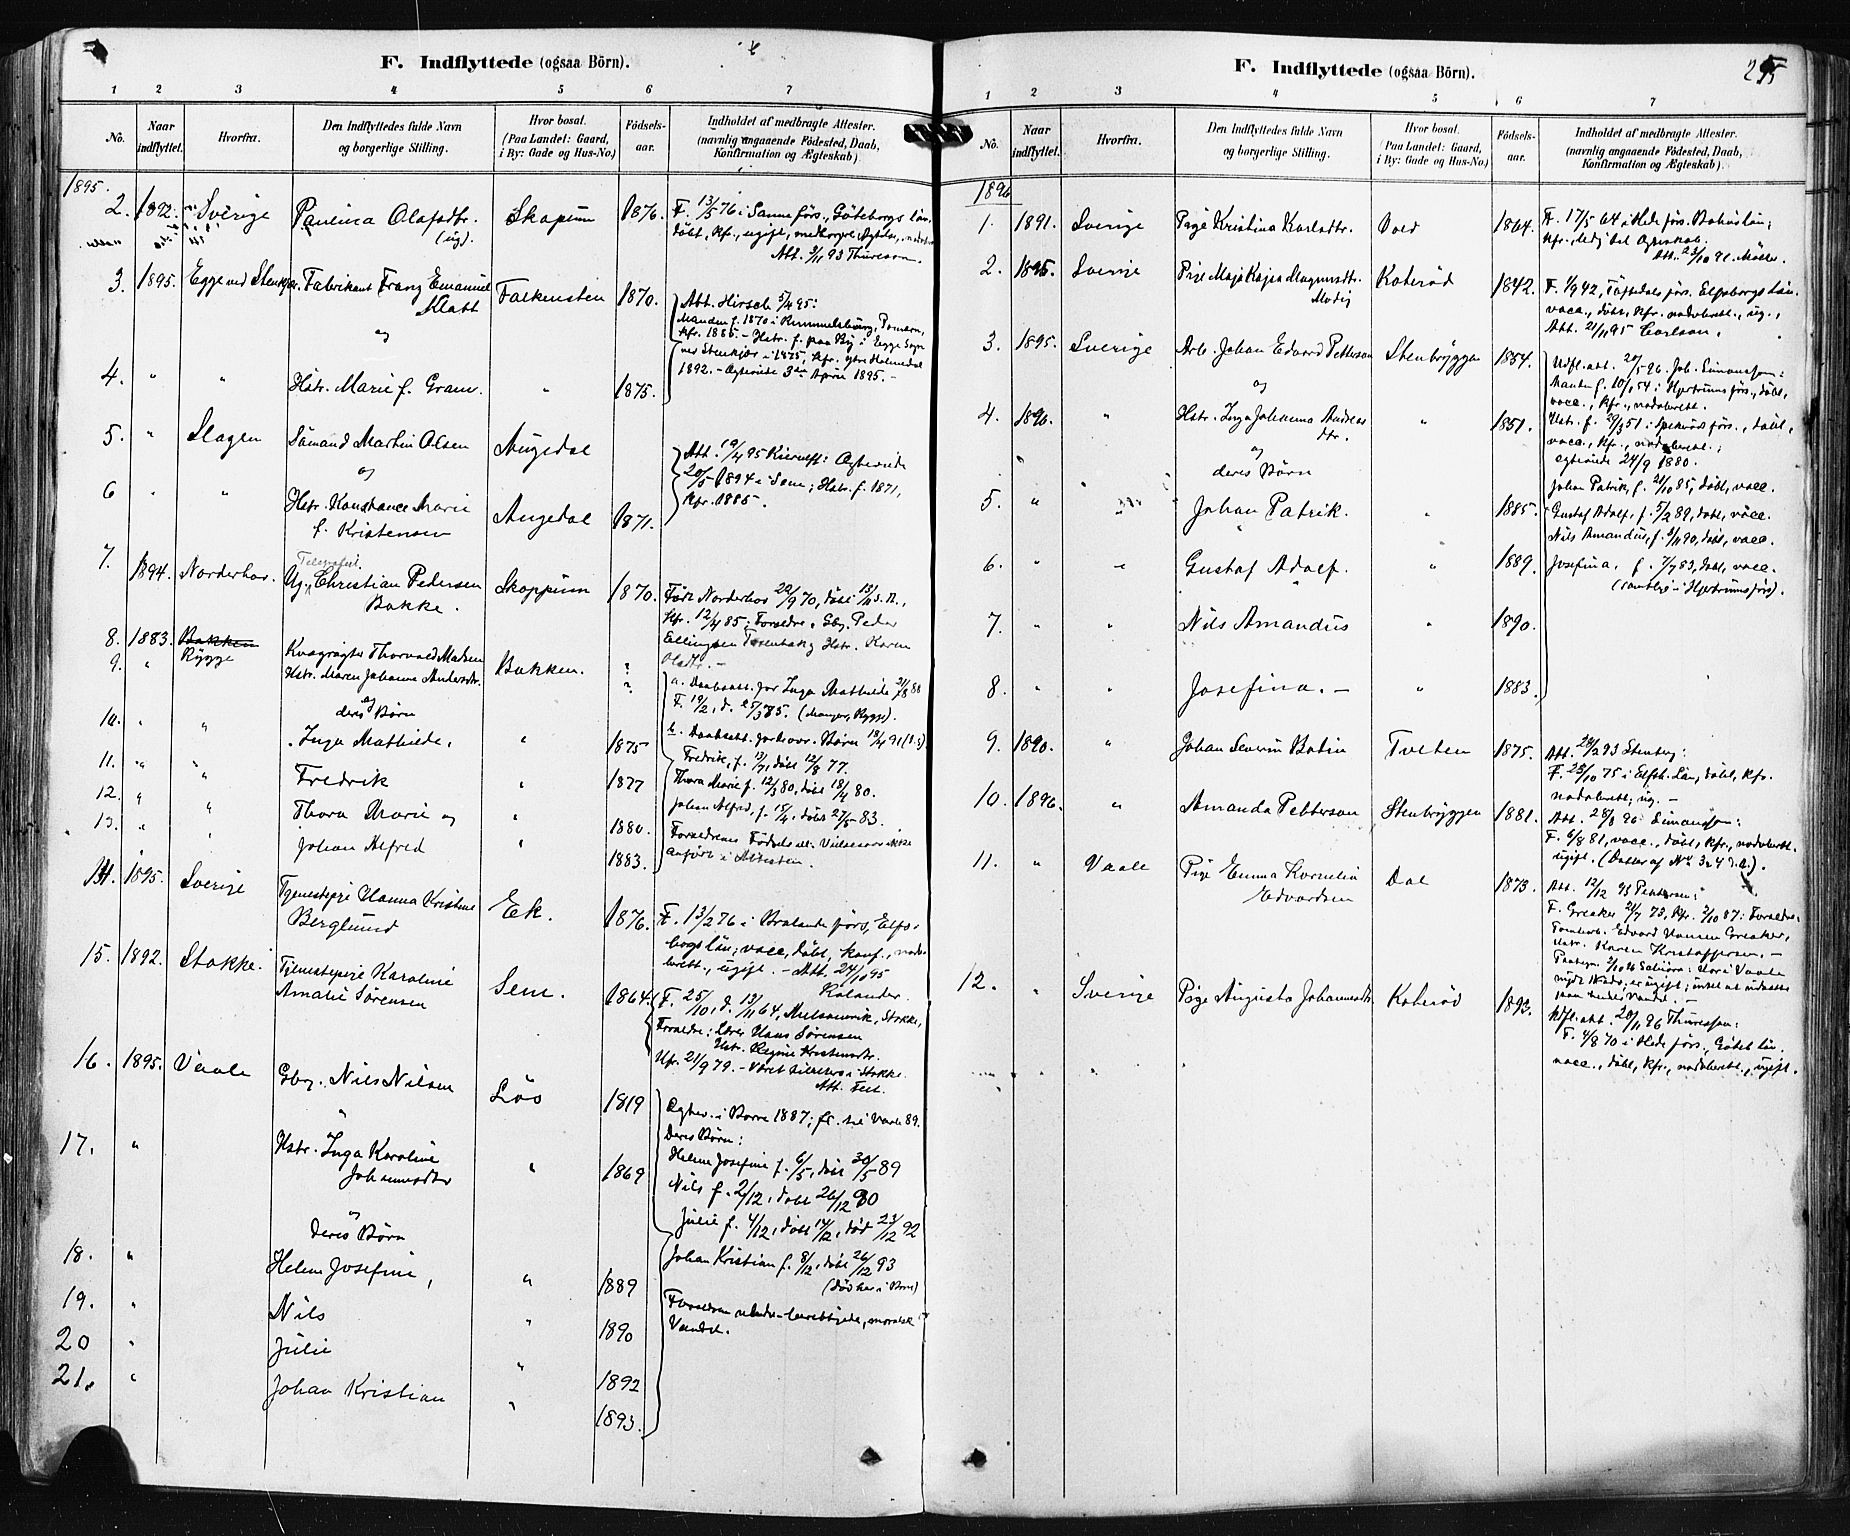 F. Indflyttede (ogsaa Börn).
1 2 3 4 5 6 7
No. Naar indflyttet. Hvorfra. Den Indflyttedes fulde Navn og borgerlige Stilling. Hvor bosat. (Paa Landet: Gaard, i By: Gade og Hus-No.) Födsels-aar. Indholdet af medbragte Attester. (navnlig angaaende Födested, Daab, Konfirmation og Ægteskab)
1895.
2. 1892. Sverige Paulina Olafsdtr. Skopum 1876. F. 13/5 76 i Sanne förs., Göteborgs län,
(ug) döbt, kfr., ugift,
Att. 3/11 93 Thureson.
3. 1895. Egge ved Stenkjær. Fabrikant Franz Emanuel Falkensten 1870. Att. Hirsch 5/4 95:
Klatt
og
Manden f. 1870 i Rummelsburg, Pomern,
kfr. 1885. – Hstr. f. paa By i Egge Sogn
ved Stenkjær i 1875, kfr. ytre Holmedal
1892. – Ægteviede 3die April 1895. –
4. " " Hstr. Marie f. Gram. " 1875.
5. " Slagen Sämand Martin Olsen Augedal
og
Att. 19/4 95 Kierulff: Ægteviede
20/5 1894 i Sem; Hstr. f. 1871,
kfr. 1885.
6 " " Hstr. Konstance Marie Augedal 1871.
f. Kristensen
7. 1894. Norderhov. Ug. Telegrafist Christian Pedersen Skoppum 1870.
Bakke.
Födt Norderhov 22/9 70, döbt 13/11 s. A.,
Kfr. 12/4 85; Foreldre: Gbr. Peder
Ellingsen Hstr. Karen
Olsdtr. –
8. 1883. Bakken Rygge Kvægrögter Thorvald Madsen Bakken. "
9. " Hstr. Maren Johanne Andersdtr. "
og
deres Börn
a. Daabsatt. for Inga Mathilde 21/8 88
F. 19/2, d. 25/3 75. (Rygge).
10. " " Inga Mathilde. " 1875
b. Daabsatt. for hver Börn 18/4 91
11. " " Fredrik " 1877
Fredrik, f. 13/7, döbt 12/8 77.
12. " " Thora Marie og " 1880.
Thora Marie f. 12/3 80, döbt 18/4 80.
13. " " Johan Alfred " 1883.
Johan Alfred, f. 15/4, döbt 27/5 83.
Foreldrenes Födsels el. Vielsesaar ikke
anfört i Attesten.
14. 1895. Sverige Tjenestepige Hanna Kristine Ek. 1876.
Berglund
F. 13/2 76 i Bralanda förs., Elfs-
borgs län; vacc., döbt, konf.,
ugift. – Att. 24/10 95
Kolander.
15. 1892. Stokke. Tjenestepige Karoline Sem. 1864.
Amalie Sörensen
F. 25/10, d. 13/11 64, Melsomvik, Stokke,
Foreldre: Hans Sörensen
Hstr. Regine Kristensdtr.
Kfr. 21/9 79. – Været tilreisende i Stokke.
16. 1895. Vaale Gbrg. Nils Nilsen Lös 1819
Ægtev. i Borre 1887; fl. til Vaale 89.
Deres Börn:
17. " Hstr. Inga Karoline " 1869
Johannesdtr
og
Deres Börn
Helene Josefine f. 6/5, döbt 30/5 89
Nils f. 2/12, döbt 26/12 90
Julie f. 4/12, döbt 14/12, död 23/12 92
18. " Helene Josefine, " 1889
Johan Kristian f. 8/12, döbt 26/12 93
(Död her i Borre)
19. " Nils " 1890
20 " Julie " 1892
21. " Johan Kristian " 1893.
F. Indflyttede (ogsaa Börn).
1 2 3 4 5 6 7
No. Naar indflyttet. Hvorfra. Den Indflyttedes fulde Navn og borgerlige Stilling. Hvor bosat. (Paa Landet: Gaard, i By: Gade og Hus-No.) Födsels-aar. Indholdet af medbragte Attester. (navnlig angaaende Födested, Daab, Konfirmation og Ægteskab)
1896
1. 1891. Sverige Pige Kristina Karlsdtr. 1864. F. 17/5 64 i Hede förs. Bohuslän;
kfr., ledig til Ægteskab.
Att. 23/10 91. Möller.
2. 1895. Sverrie Pige Maja Kajsa Magnusdtr. Koteröd 1842.
Modig
F. 1/9 42, Töftedals förs. Elfsborgs län.
vacc., döbt, kfr. nadvberett., ug.,
Att. 21/11 95 Carlson.
3. 1895. Sverige Arb. Johan Edvard Pettersson Stenbryggen 1854.
og
Udfl. att. 20/5 96. Joh. Simonsson:
Manden f. 10/1 54 i Hjertrums förs., döbt,
vacc., kfr., nadvberett.
4. 1896. " Hstr. Inga Johanna Andreas " 1851.
dtr.
og
deres Börn
Hstr. f. 29/3 51 i förs., döbt,
vacc., kfr., nadvberett.;
ægteviede 24/9 1880.
5. " " Johan Patrik. " 1885.
Johan Patrik, f. 21/10 85, döbt, vacc.
Gustaf Adolf, f. 5/2 89, döbt, vacc.
Nils Amandus, f. 3/11 90, döbt, vacc.
6. " " Gustaf Adolf. " 1889.
Josefina, f. 7/7 83, döbt, vacc.
(samtlige i Hjertrums förs).
7. " " Nils Amandus " 1890.
8. " " Josefina. – " 1883.
9. 1890. " Johan Severin Bolin Tveten 1875.
Att. 24/2 93 Stenberg:
F. 25/10 75 i Elfsb. Län, döbt, kfr.
nadvberett; ug. –
10. 1896. " Amanda Pettersson Stenbryggen 1881.
Att. 28/8 96 Simonsson:
F. 6/8 81, vacc., döbt, kfr., nadvberett.
ugift. (Datter af No 3 & 4 d. A.).
11. " Vaale Pige Emma Kornelia Dal 1873.
Edvardsen
Att. 12/12 93
F. Greaker 21/7 73, kfr. 2/10 87: Foreldre:
Edvard Hansen Greaker,
Hstr. Karen Kristoffersen. –
12. " Sverige Pige Augusta Johannesdtr. Koteröd
Udfl. att. 20/11 96 Thuresson:
F. 4/8 70 i Hede förs., Göteb. län.
vacc., döbt, kfr., nadvberett., ugift.